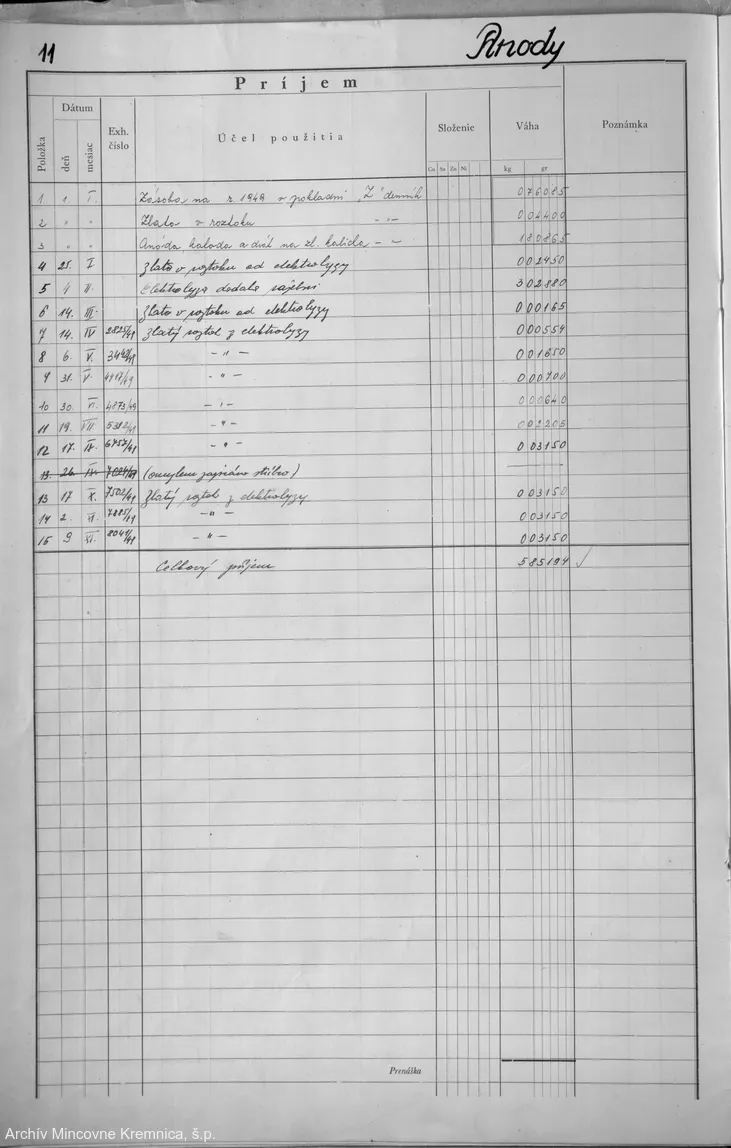 11
Anody
Príjem
Položka
Dátum
deň
mesiac
Exh. číslo
Účel použitia
Složenie
Cu Sn Zn Ni
Váha
kg gr
Poznámka
1 1. I. Zásoba na r. 1949 v pokladni „Z" denník 076085
2 " " Zlato v roztoku –"– 004400
3 " " Anóda, katoda a drát na zl. –"– 180865
4 25. I Zlato v roztoku od elektrolyzy 002450
5 4 II. Elektrolyza dodala 302880
6 14. III. Zlato v roztoku od elektrolyzy 000165
7 14. IV 2825/49 Zlatý roztok z elektrolyzy 000554
8 6. V. –"– 001650
9 31. V. 4417/49 –"– 000700
10 30. VI. 4873/49 –"– 000640
11 19. VII. 5382/49 –"– 002205
12 17. IX. 6757/49 –"– 003150
13. 26. IX. (omylem zapsáno stříbro) —
13 17 X. 7502/49 Zlatý roztok z elektrolyzy 003150
14 2. XI. 7885/49 –"– 003150
15 9 XI. 8041/49 –"– 003150
Celkový příjem 585194 ✓
Prenáška
Archív Mincovne Kremnica, š.p.